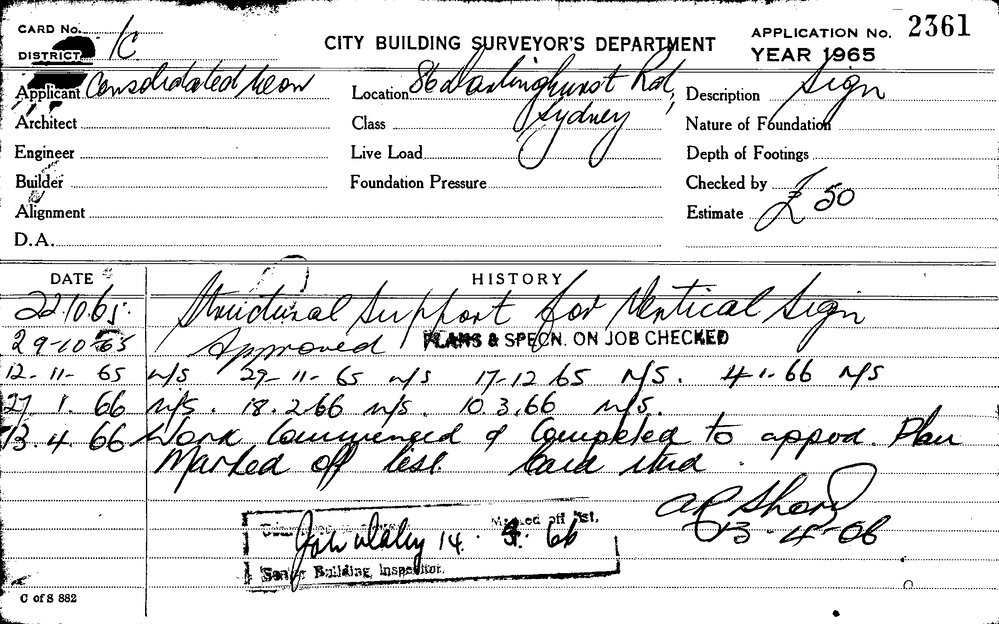 CARD No.
DISTRICT 1C
CITY BUILDING SURVEYOR'S DEPARTMENT
APPLICATION No. 2361
YEAR 1965
Applicant Consolidated Neon
Location 86 Darlinghurst Rd,
Sydney
Description Sign
Architect
Class
Nature of Foundation
Engineer
Live Load
Depth of Footings
Builder
Foundation Pressure
Checked by
Alignment
Estimate £50
D.A.
DATE HISTORY
22.10.65. Structural Support for Vertical Sign
29-10-65 Approved PLANS & SPECN. ON JOB CHECKED
12-11-65 n/s 29-11-65 n/s 17-12-65 n/s. 4-1-66 n/s
27.1.66 n/s. 18.2.66 n/s. 10.3.66 n/s.
13.4.66 Work Commenced & Completed to appvd. Plan
Marked off list. Card
13-4-66
Marked off list,
14. 66
Senior Building Inspector.
C of S 882